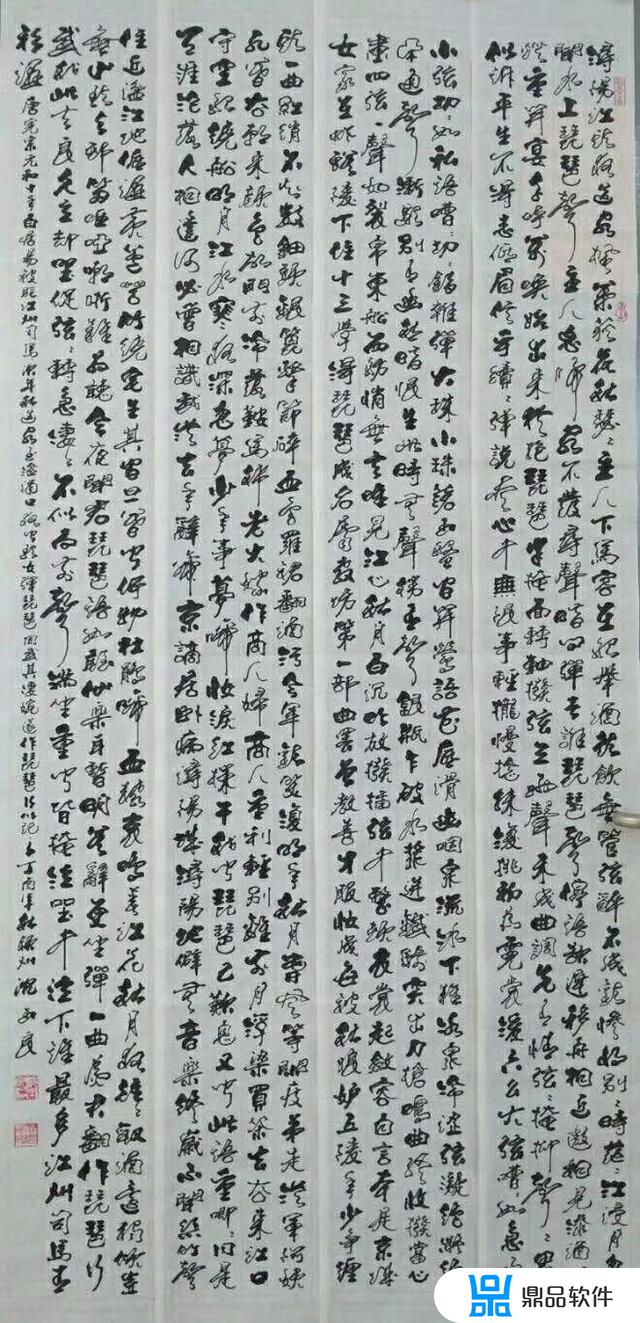 潯陽江頭夜送客楓葉荻花秋瑟々主人下馬客在船舉酒欲飲無管弦醉不成歡慘將別々時茫々江浸月
聞水上琵琶聲主人忘歸客不發尋聲暗問彈者誰琵琶聲停語欲遲移舟相近邀相見添酒
燈重開宴千呼萬喚始出來猶抱琵琶半掩面轉軸撥弦三兩聲未成曲調先有情弦々掩抑聲々思
似訴平生不得志低眉信手續々彈說盡心中無限事輕攏慢撚抹復挑初為霓裳後六幺大弦嘈々如急雨
小弦切々如私語嘈々切々錯雜彈大珠小珠落玉盤間關鶯語花底滑幽咽泉流冰下難冰泉冷澀弦凝絕凝絕
不通聲漸歇別有幽愁暗恨生此時無聲勝有聲銀瓶乍破水漿迸鐵騎突出刀槍鳴曲終收撥當心
畫四弦一聲如裂帛東船西舫悄無言唯見江心秋月白沉吟放撥插弦中整頓衣裳起斂容自言本是京城
女家在蝦蟆陵下住十三學得琵琶成名屬教坊第一部曲罷曾教善才服妝成每被秋娘妒五陵年少爭纏
頭一曲紅綃不知數鈿頭銀篦擊節碎血色羅裙翻酒污今年歡笑復明年秋月春風等閑度弟走從軍阿姨
死暮去朝來顏色故門前冷落鞍馬稀老大嫁作商人婦商人重利輕別離前月浮梁買茶去去來江口
守空船繞船明月江水寒夜深忽夢少年事夢啼妝淚紅闌干我聞琵琶已歎息又聞此語重唧々同是
天涯淪落人相逢何必曾相識我從去年辭帝京謫居臥病潯陽城潯陽地僻無音樂終歲不聞絲竹聲
住近湓江地低濕黃蘆苦竹繞宅生其間旦暮聞何物杜鵑啼血猿哀鳴春江花朝秋月夜往々取酒還獨傾豈
無山歌與村笛嘔啞嘲哳難為聽今夜聞君琵琶語如聽仙樂耳暫明莫辭更坐彈一曲為君翻作琵琶行
感我此言良久立卻坐促弦々轉急淒々不似向前聲滿坐重聞皆掩泣坐中泣下誰最多江州司馬青
衫濕 唐憲宗元和十年白居易被貶江州司馬次年秋送客至湓浦口夜聞歌女彈琵琶因感其淒婉遂作琵琶行以記之丁丙年秋
鼎品软件